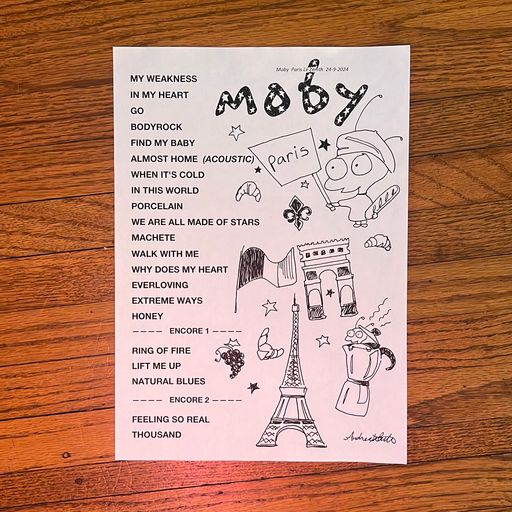 Moby Paris Le Zenith 24-9-2024
moby
MY WEAKNESS
IN MY HEART
GO
BODYROCK
FIND MY BABY
ALMOST HOME (ACOUSTIC)
WHEN IT'S COLD
IN THIS WORLD
PORCELAIN
WE ARE ALL MADE OF STARS
MACHETE
WALK WITH ME
WHY DOES MY HEART
EVERLOVING
EXTREME WAYS
HONEY
---- ENCORE 1 ----
RING OF FIRE
LIFT ME UP
NATURAL BLUES
---- ENCORE 2 ----
FEELING SO REAL
THOUSAND
Paris